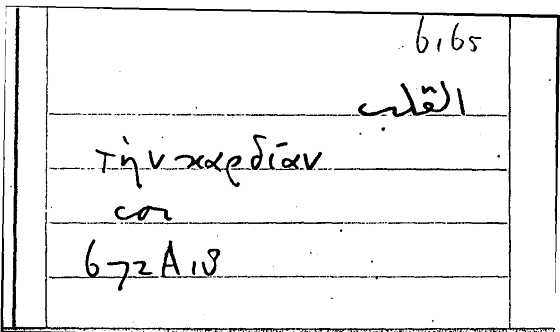 6,65
القلب
τὴν καρδίαν
cor
672A13